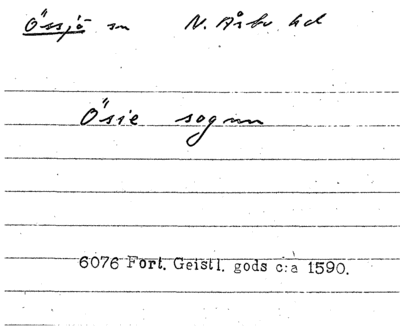 Össjö sn N. Åsbo hd
Ösie sognn
6076 Fort. Geistl. gods c:a 1590.